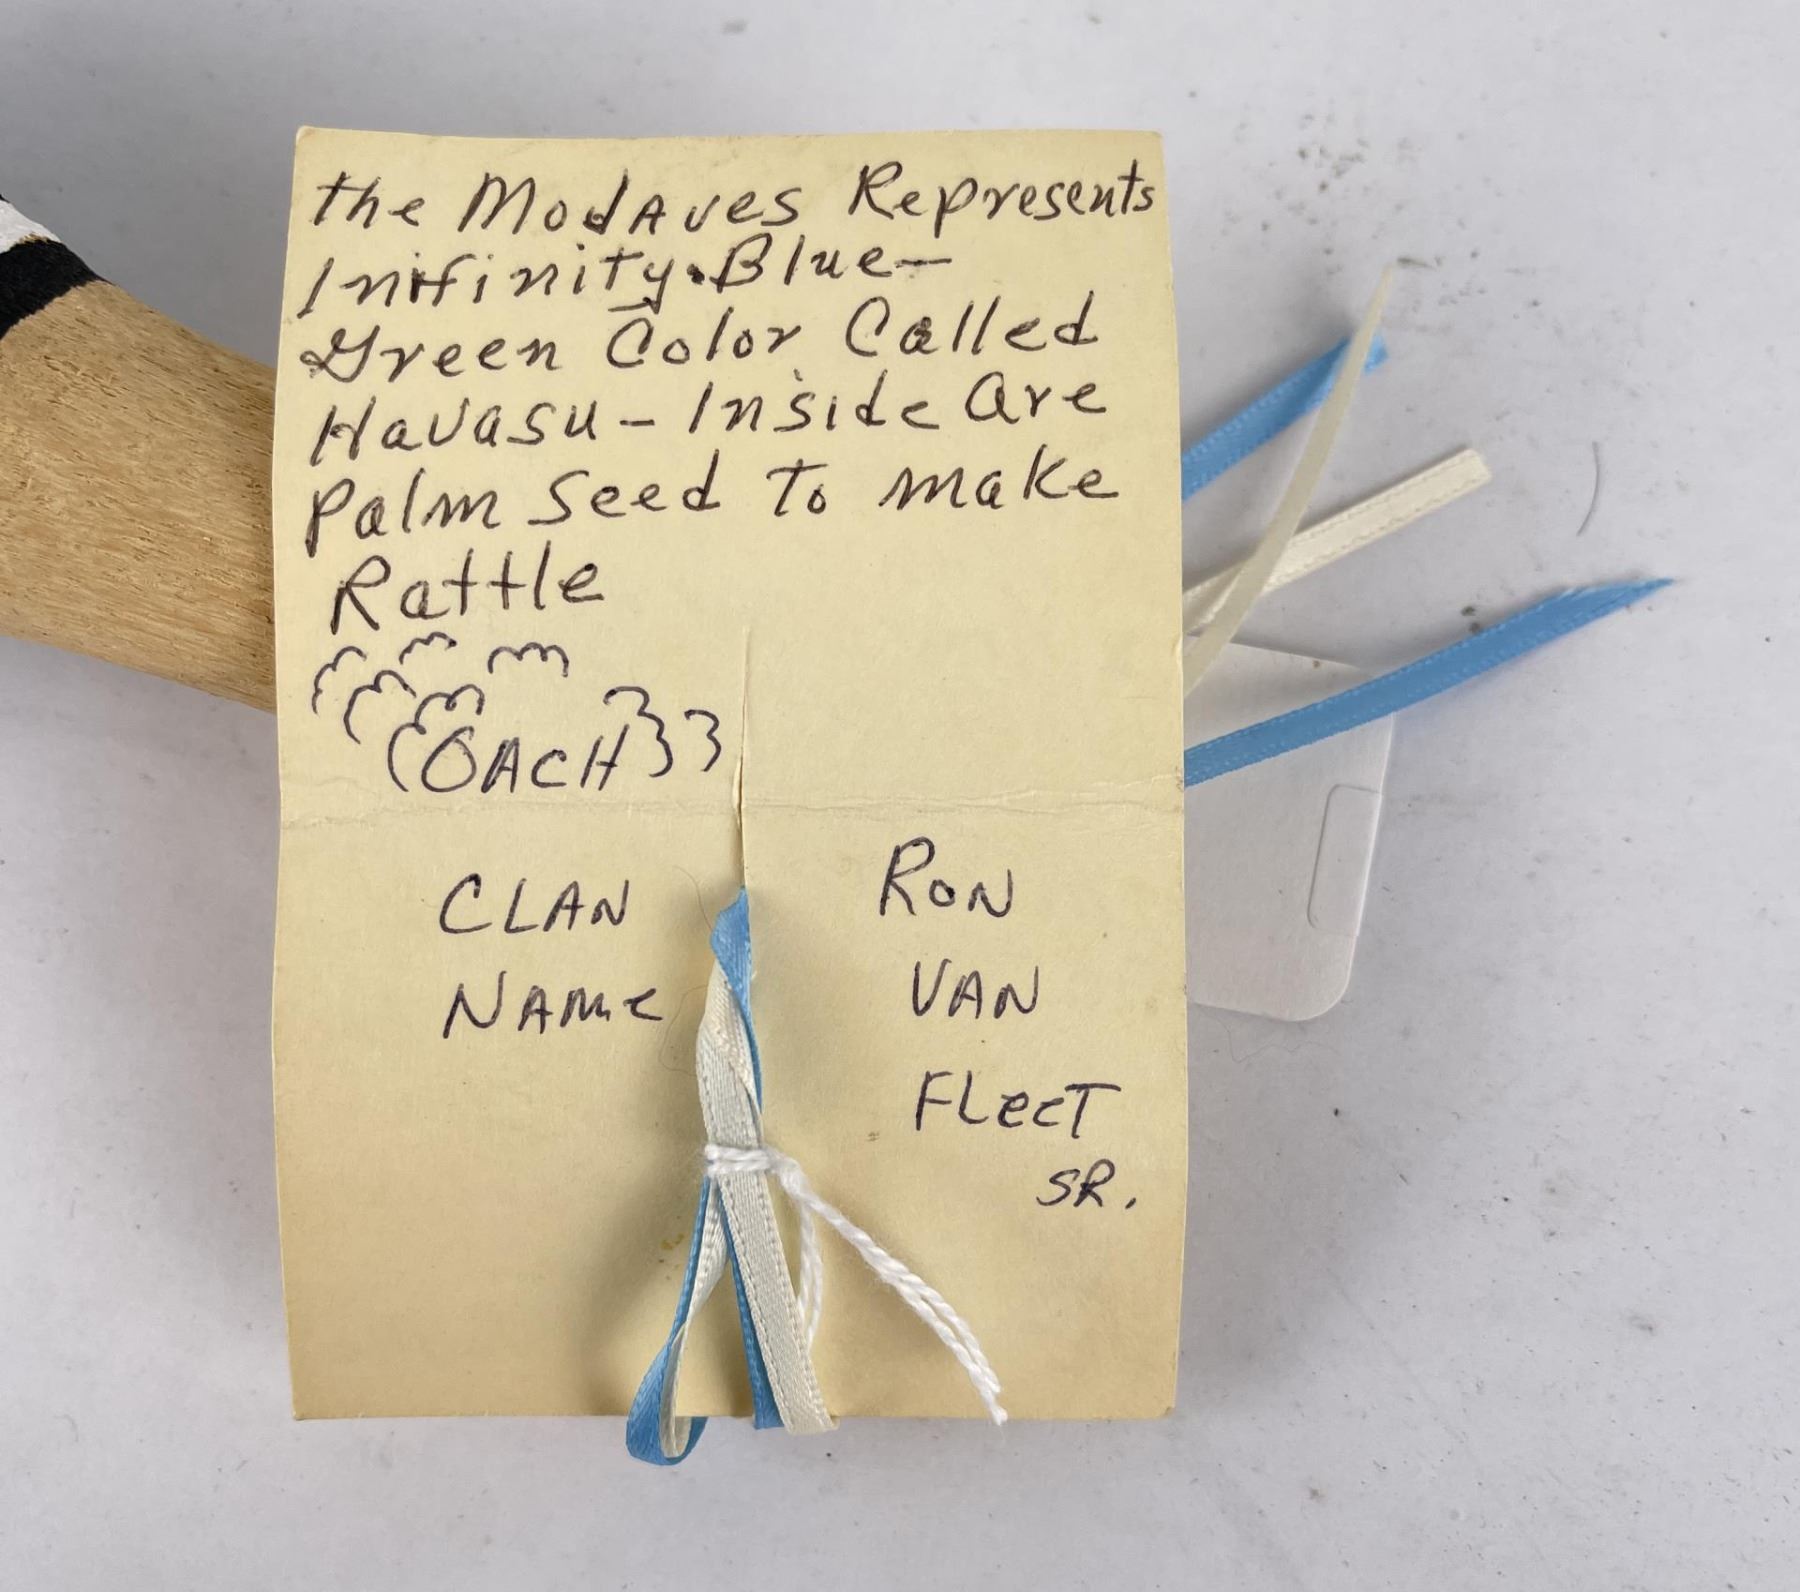 the ModAves Represents
Inifinity. Blue-
Green Color Called
Havasu - Inside Are
Palm Seed To make
Rattle
OACH
CLAN
NAMe
RON
VAN
FLeeT
SR.